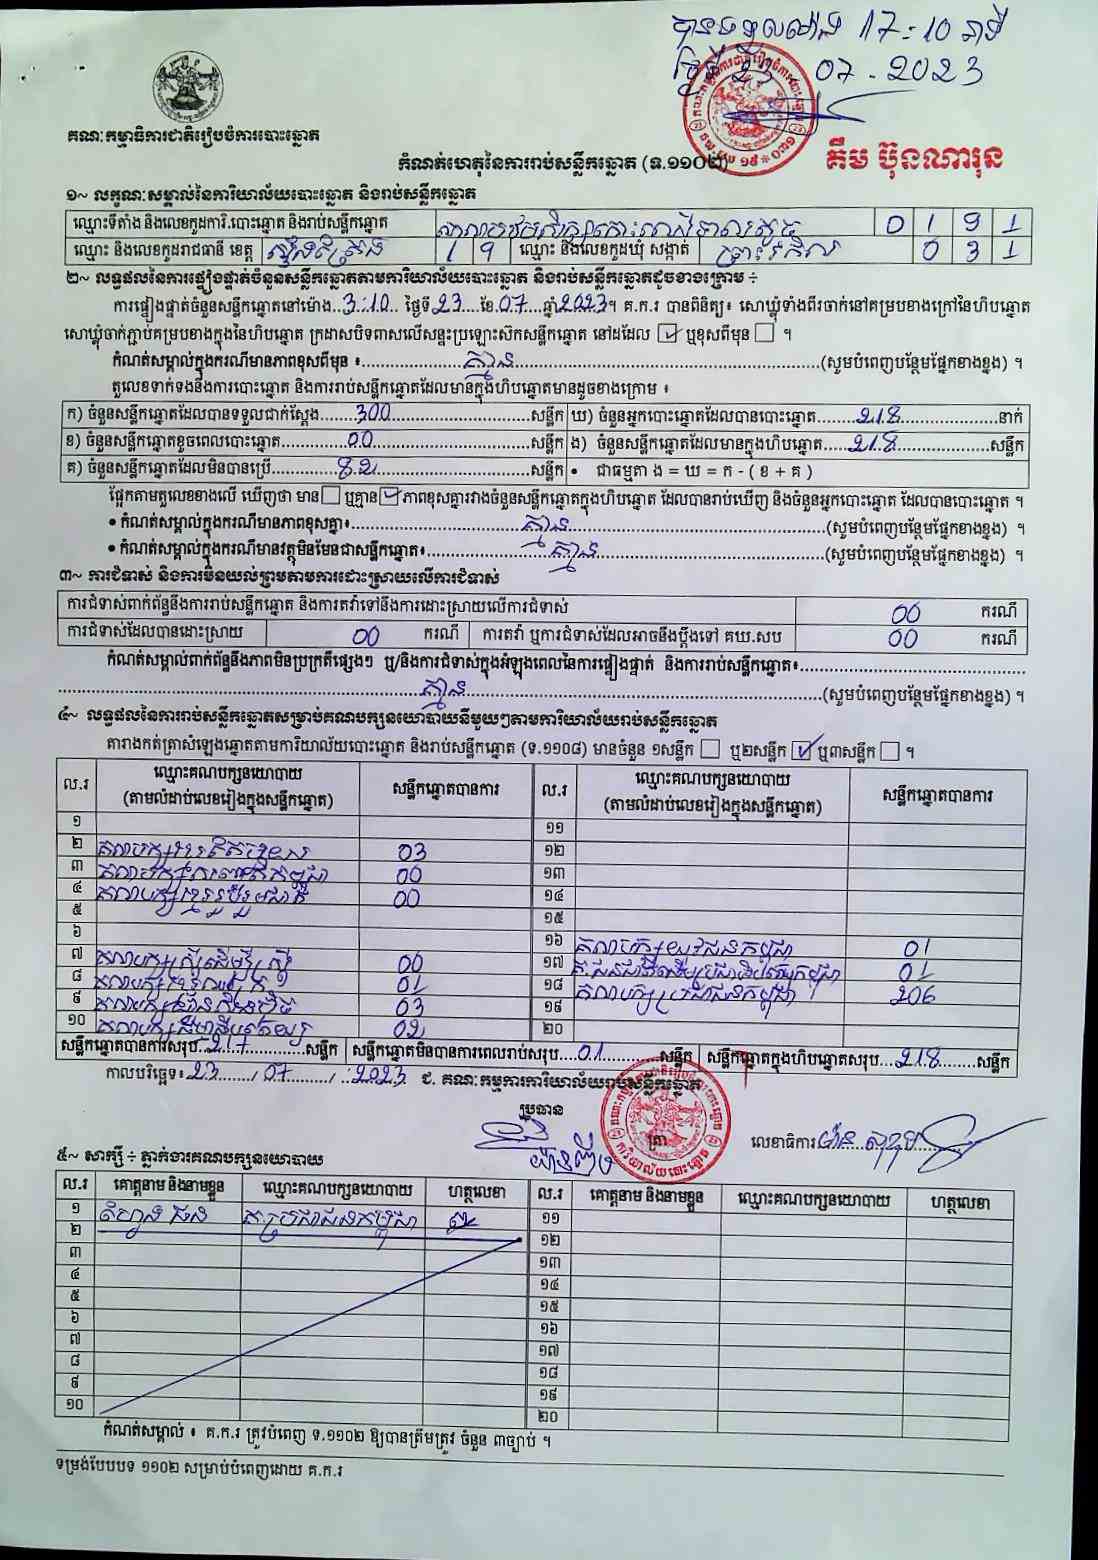 បានទទួលម៉ោង 17:10 នាទី
ថ្ងៃទី 23 07-2023
គណៈកម្មាធិការជាតិរៀបចំការបោះឆ្នោត
គឹម ប៊ុនណារុន
កំណត់ហេតុនៃការរាប់សន្លឹកឆ្នោត (ទ.១១០២)
១~ លក្ខណៈសម្គាល់នៃការិយាល័យបោះឆ្នោត និងរាប់សន្លឹកឆ្នោត
ឈ្មោះទីតាំង និងលេខកូដការិ.បោះឆ្នោត និងរាប់សន្លឹកឆ្នោត 0 1 9 1
ឈ្មោះ និងលេខកូដរាជធានី ខេត្ត ស្ទឹងត្រែង 1 9 ឈ្មោះ និងលេខកូដឃុំ សង្កាត់ 0 3 1
២~ លទ្ធផលនៃការផ្ទៀងផ្ទាត់ចំនួនសន្លឹកឆ្នោតតាមការិយាល័យបោះឆ្នោត និងរាប់សន្លឹកឆ្នោតដូចខាងក្រោម ÷
ការផ្ទៀងផ្ទាត់ចំនួនសន្លឹកឆ្នោតនៅម៉ោង..3:10.. ថ្ងៃទី23...ខែ.07...ឆ្នាំ2023។ គ.ក.រ បានពិនិត្យ៖ សោឃ្លុំទាំងពីរចាក់នៅគម្របខាងក្រៅនៃហិបឆ្នោត
សោឃ្លុំចាក់ភ្ជាប់គម្របខាងក្នុងនៃហិបឆ្នោត ក្រដាសបិទពាសលើសន្ទះប្រឡោះស៊កសន្លឹកឆ្នោត នៅដដែល ☑ ឬខុសពីមុន ☐ ។
កំណត់សម្គាល់ក្នុងករណីមានភាពខុសពីមុន ៖.....គ្មាន.....(សូមបំពេញបន្ថែមផ្នែកខាងខ្នង) ។
តួលេខទាក់ទងនឹងការបោះឆ្នោត និងការរាប់សន្លឹកឆ្នោតដែលមានក្នុងហិបឆ្នោតមានដូចខាងក្រោម ៖
ក) ចំនួនសន្លឹកឆ្នោតដែលបានទទួលជាក់ស្តែង.....300.....សន្លឹក ឃ) ចំនួនអ្នកបោះឆ្នោតដែលបានបោះឆ្នោត.....218.....នាក់
ខ) ចំនួនសន្លឹកឆ្នោតខូចពេលបោះឆ្នោត.....00.....សន្លឹក ង) ចំនួនសន្លឹកឆ្នោតដែលមានក្នុងហិបឆ្នោត.....218.....សន្លឹក
គ) ចំនួនសន្លឹកឆ្នោតដែលមិនបានប្រើ.....82.....សន្លឹក • ជាធម្មតា ង = ឃ = ក - ( ខ + គ )
ផ្អែកតាមតួលេខខាងលើ ឃើញថា មាន ☐ ឬគ្មាន ☑ ភាពខុសគ្នារវាងចំនួនសន្លឹកឆ្នោតក្នុងហិបឆ្នោត ដែលបានរាប់ឃើញ និងចំនួនអ្នកបោះឆ្នោត ដែលបានបោះឆ្នោត ។
• កំណត់សម្គាល់ក្នុងករណីមានភាពខុសគ្នា៖.....គ្មាន.....(សូមបំពេញបន្ថែមផ្នែកខាងខ្នង) ។
• កំណត់សម្គាល់ក្នុងករណីមានវត្ថុមិនមែនជាសន្លឹកឆ្នោត៖.....គ្មាន.....(សូមបំពេញបន្ថែមផ្នែកខាងខ្នង) ។
៣~ ការជំទាស់ និងការមិនយល់ព្រមតាមការដោះស្រាយលើការជំទាស់
ការជំទាស់ពាក់ព័ន្ធនឹងការរាប់សន្លឹកឆ្នោត និងការតវ៉ាទៅនឹងការដោះស្រាយលើការជំទាស់ 00 ករណី
ការជំទាស់ដែលបានដោះស្រាយ 00 ករណី ការតវ៉ា ឬការជំទាស់ដែលអាចនឹងប្តឹងទៅ គឃ.សប 00 ករណី
កំណត់សម្គាល់ពាក់ព័ន្ធនឹងភាពមិនប្រក្រតីផ្សេងៗ ឬ/និងការជំទាស់ក្នុងអំឡុងពេលនៃការផ្ទៀងផ្ទាត់ និងការរាប់សន្លឹកឆ្នោត៖.....
.....គ្មាន.....(សូមបំពេញបន្ថែមផ្នែកខាងខ្នង) ។
៤~ លទ្ធផលនៃការរាប់សន្លឹកឆ្នោតសម្រាប់គណបក្សនយោបាយនីមួយៗតាមការិយាល័យរាប់សន្លឹកឆ្នោត
តារាងកត់ត្រាសំឡេងឆ្នោតតាមការិយាល័យបោះឆ្នោត និងរាប់សន្លឹកឆ្នោត (ទ.១១០៨) មានចំនួន ១សន្លឹក ☐ ឬ២សន្លឹក ☑ ឬ៣សន្លឹក ☐ ។
ល.រ ឈ្មោះគណបក្សនយោបាយ (តាមលំដាប់លេខរៀងក្នុងសន្លឹកឆ្នោត) សន្លឹកឆ្នោតបានការ ល.រ ឈ្មោះគណបក្សនយោបាយ (តាមលំដាប់លេខរៀងក្នុងសន្លឹកឆ្នោត) សន្លឹកឆ្នោតបានការ
១ ១១
២ 03 ១២
៣ 00 ១៣
៤ គណបក្សខ្មែររួបរួមជាតិ 00 ១៤
៥ ១៥
៦ ១៦ គណបក្សយុវជនកម្ពុជា 01
៧ គណបក្សស្ត្រីដើម្បីស្ត្រី 00 ១៧ 01
៨ 01 ១៨ គណបក្សប្រជាជនកម្ពុជា 206
៩ 03 ១៩
១០ 02 ២០
សន្លឹកឆ្នោតបានការសរុប..217.....សន្លឹក សន្លឹកឆ្នោតមិនបានការពេលរាប់សរុប....01.....សន្លឹក សន្លឹកឆ្នោតក្នុងហិបឆ្នោតសរុប....218.....សន្លឹក
កាលបរិច្ឆេទ÷23...../07...../..2023 ជ. គណៈកម្មការការិយាល័យរាប់សន្លឹកឆ្នោត
ប្រធាន ត្រា លេខាធិការ
៥~ សាក្សី ÷ ភ្នាក់ងារគណបក្សនយោបាយ
ល.រ គោត្តនាម និងនាមខ្លួន ឈ្មោះគណបក្សនយោបាយ ហត្ថលេខា ល.រ គោត្តនាម និងនាមខ្លួន ឈ្មោះគណបក្សនយោបាយ ហត្ថលេខា
១ គ.ប្រជាជនកម្ពុជា ១១
២ ១២
៣ ១៣
៤ ១៤
៥ ១៥
៦ ១៦
៧ ១៧
៨ ១៨
៩ ១៩
១០ ២០
កំណត់សម្គាល់ ៖ គ.ក.រ ត្រូវបំពេញ ទ.១១០២ ឱ្យបានត្រឹមត្រូវ ចំនួន ៣ច្បាប់ ។
ទម្រង់បែបបទ ១១០២ សម្រាប់បំពេញដោយ គ.ក.រ